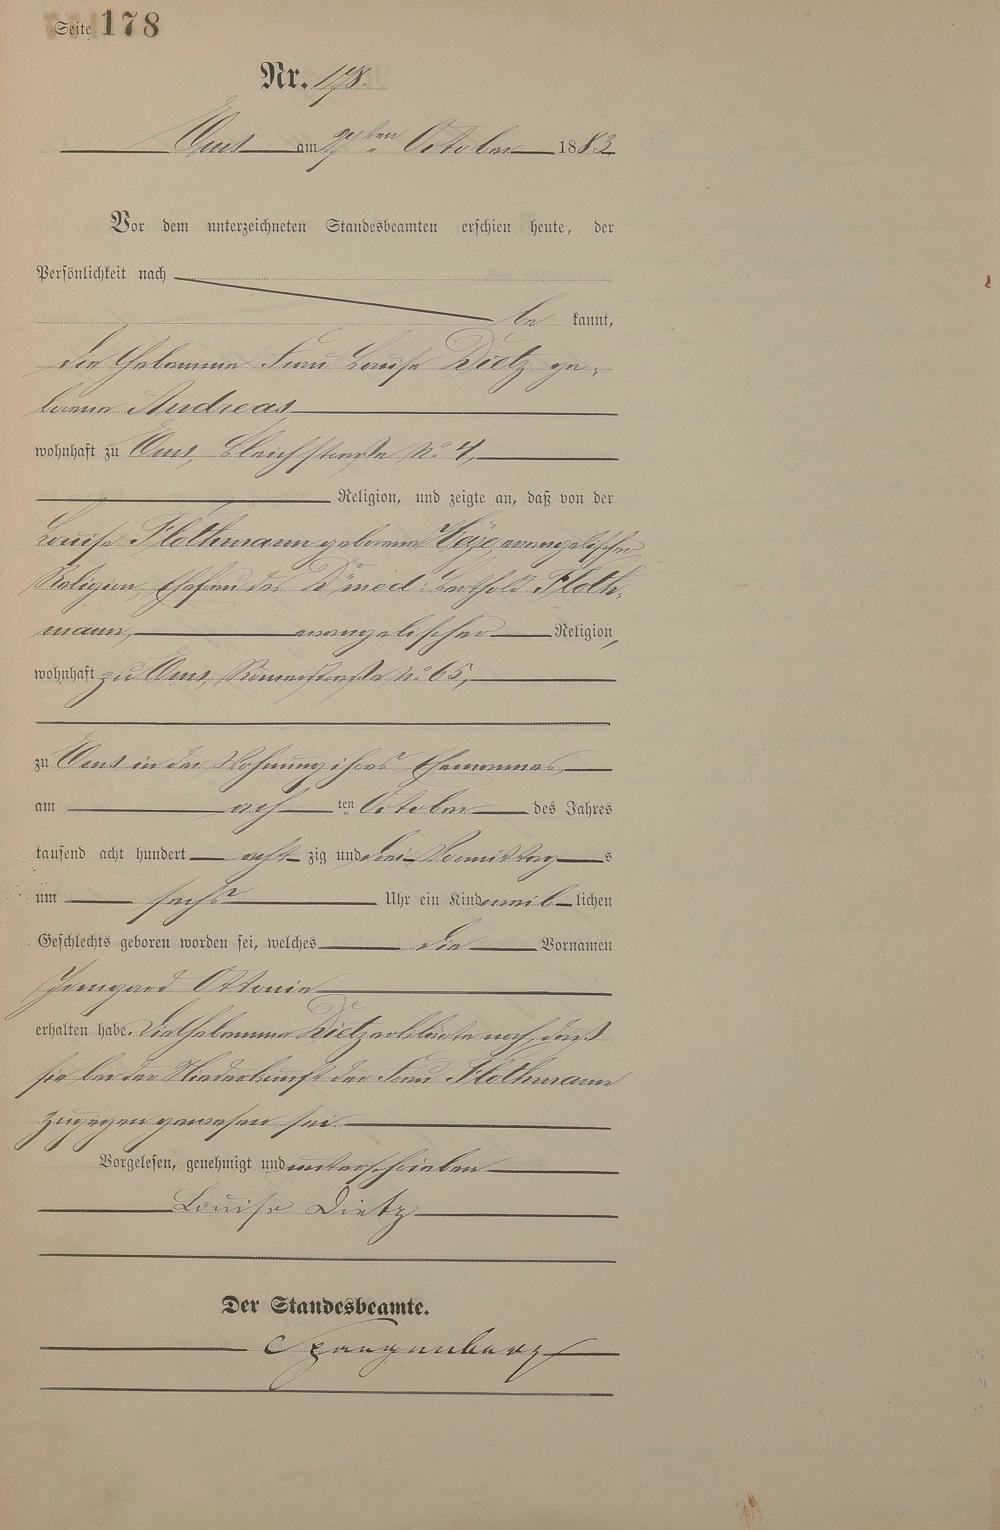 Seite 178
Nr. 178.
Ems am 9ten October 1883
Vor dem unterzeichneten Standesbeamten erschien heute, der
Persönlichkeit nach
be kannt,
die Hebamme Frau Louise Dietz ge-
borene Andreas
wohnhaft zu Ems, Bleichstraße No 4,
Religion, und zeigte an, daß von der
Louise Flothmann geborenen evangelischer
Religion, Ehefrau des Dr med: Berthold Floth-
mann, evangelischer Religion,
wohnhaft zu Ems, Römerstraße No 65,
zu Ems in der Wohnung ihres Ehemannes,
am ach ten October des Jahres
tausend acht hundert acht zig und drei Vormittag s
um sechs Uhr ein Kind weib lichen
Geschlechts geboren worden sei, welches die Vornamen
Irmgard Ottonie
erhalten habe. Die Hebamme Dietz erklärte noch, daß
sie bei der Niederkunft der Frau Flothmann
zugegen gewesen sei.
Vorgelesen, genehmigt und unterschrieben
Louise Dietz
Der Standesbeamte.
Spangenberg